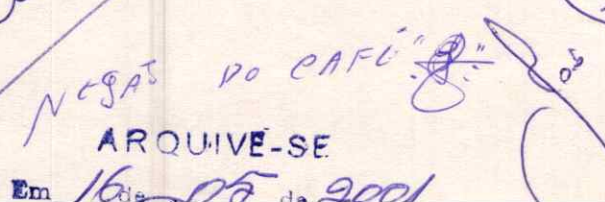 NEGAS DO CAFÉ
ARQUIVE-SE
Em 16 de 05 de 2001